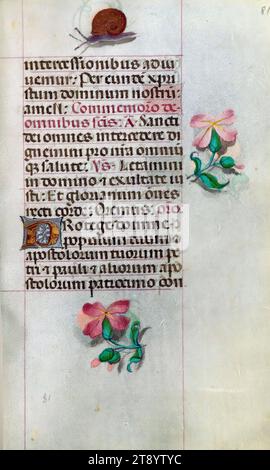 81
intercessionibus adiu
uemur: Per eundē xpri
stum dominum nostrū:
amen. Commemoro de
omnibus scīs. A. Sancti
dei omnes intercedere di
gnemini pro nr̄a omniū
qz salute. Vs. Letamini
in domino et exultate iu
sti: Et gloriamini ōnes
recti corde. Oremus. oro.
Protege domine
populum tuum et
apostolorum tuorum pe
tri et pauli et aliorum ap
ostolorum patrocinio con
81
alamy
Image ID: 2T8YTYC
www.alamy.com